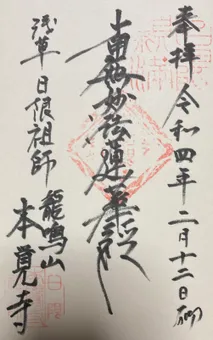 奉拝 令和四年二月十二日
南無妙法蓮華経
浅草 日限祖師
龍鳴山
本覚寺